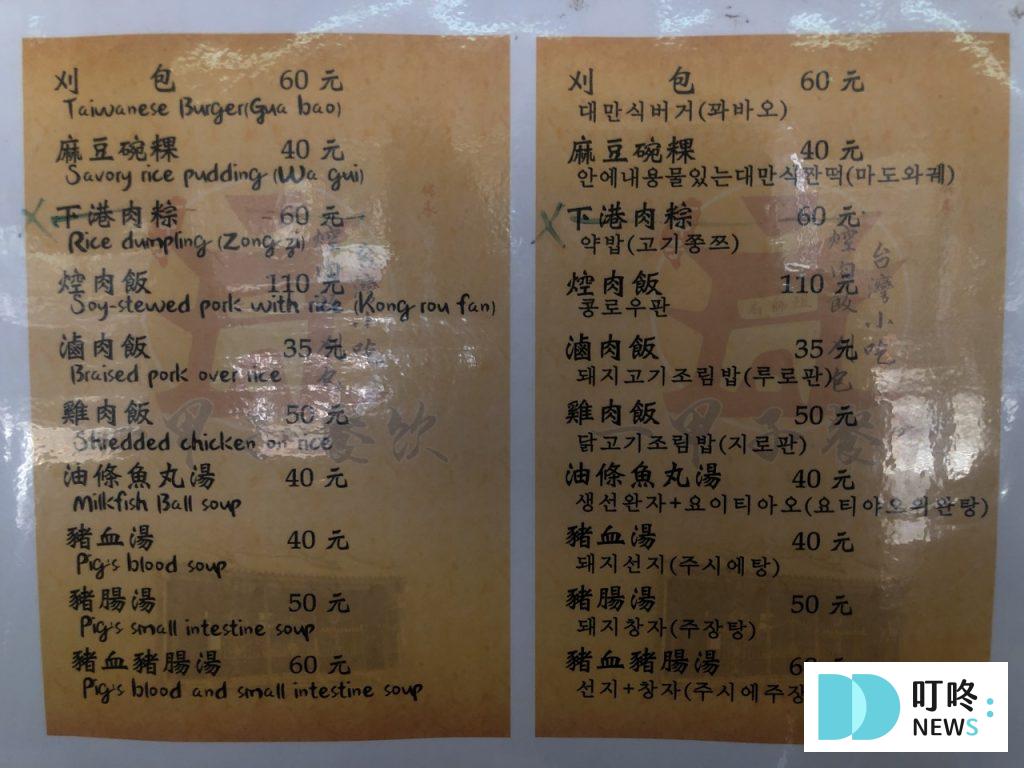 刈 包 60 元
Taiwanese Burger(Gua bao)
麻豆碗粿 40 元
Savory rice pudding (Wa gui)
X 下港肉粽 60 元
Rice dumpling (Zong zi)
焢肉飯 110 元
Soy-stewed pork with rice (Kong rou fan)
滷肉飯 35 元
Braised pork over rice
雞肉飯 50 元
Shredded chicken on rice
油條魚丸湯 40 元
Milkfish Ball soup
豬血湯 40 元
Pig's blood soup
豬腸湯 50 元
Pig's small intestine soup
豬血豬腸湯 60 元
Pig's blood and small intestine soup
刈 包 60 元
대만식버거(꽈바오)
麻豆碗粿 40 元
안에내용물있는대만식짠떡(마도와궤)
X 下港肉粽 60 元
약밥(고기쫑쯔)
焢肉飯 110 元
콩로우판
滷肉飯 35 元
돼지고기조림밥(루로판)
雞肉飯 50 元
닭고기조림밥(지로판)
油條魚丸湯 40 元
생선완자+요이티아오(요티야오위완탕)
豬血湯 40 元
돼지선지(주시에탕)
豬腸湯 50 元
돼지창자(주장탕)
豬血豬腸湯
선지+창자(주시에주장
台灣小吃
甲子餐飲
叮咚:
NEWS